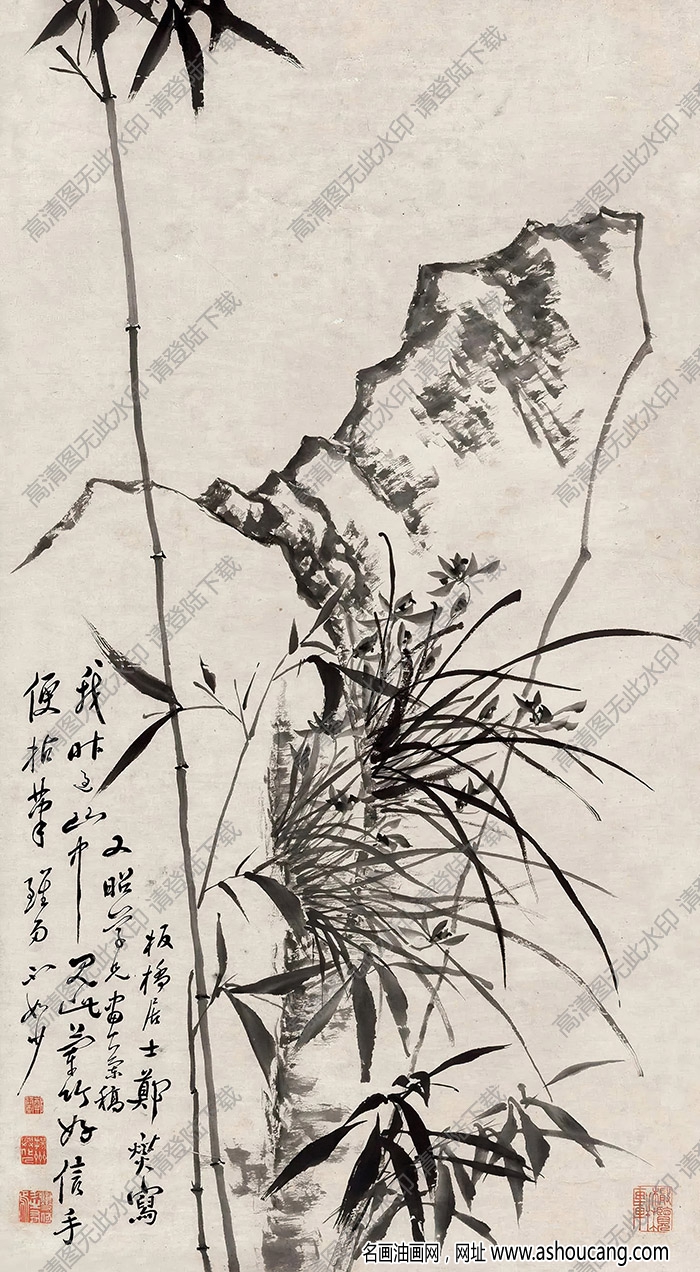 板橋居士鄭燮寫
又昭學兄
我昨過山中見此蘭竹好信手
便拈筆雖多不如少
高清图无此水印 请登陆下载
名画油画网，网址 www.ashoucang.com